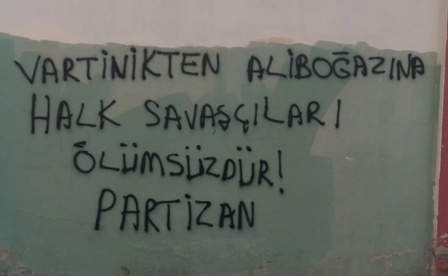 VARTİNİKTEN ALİBOĞAZINA
HALK SAVAŞÇILARI
ÖLÜMSÜZDÜR!
PARTİZAN